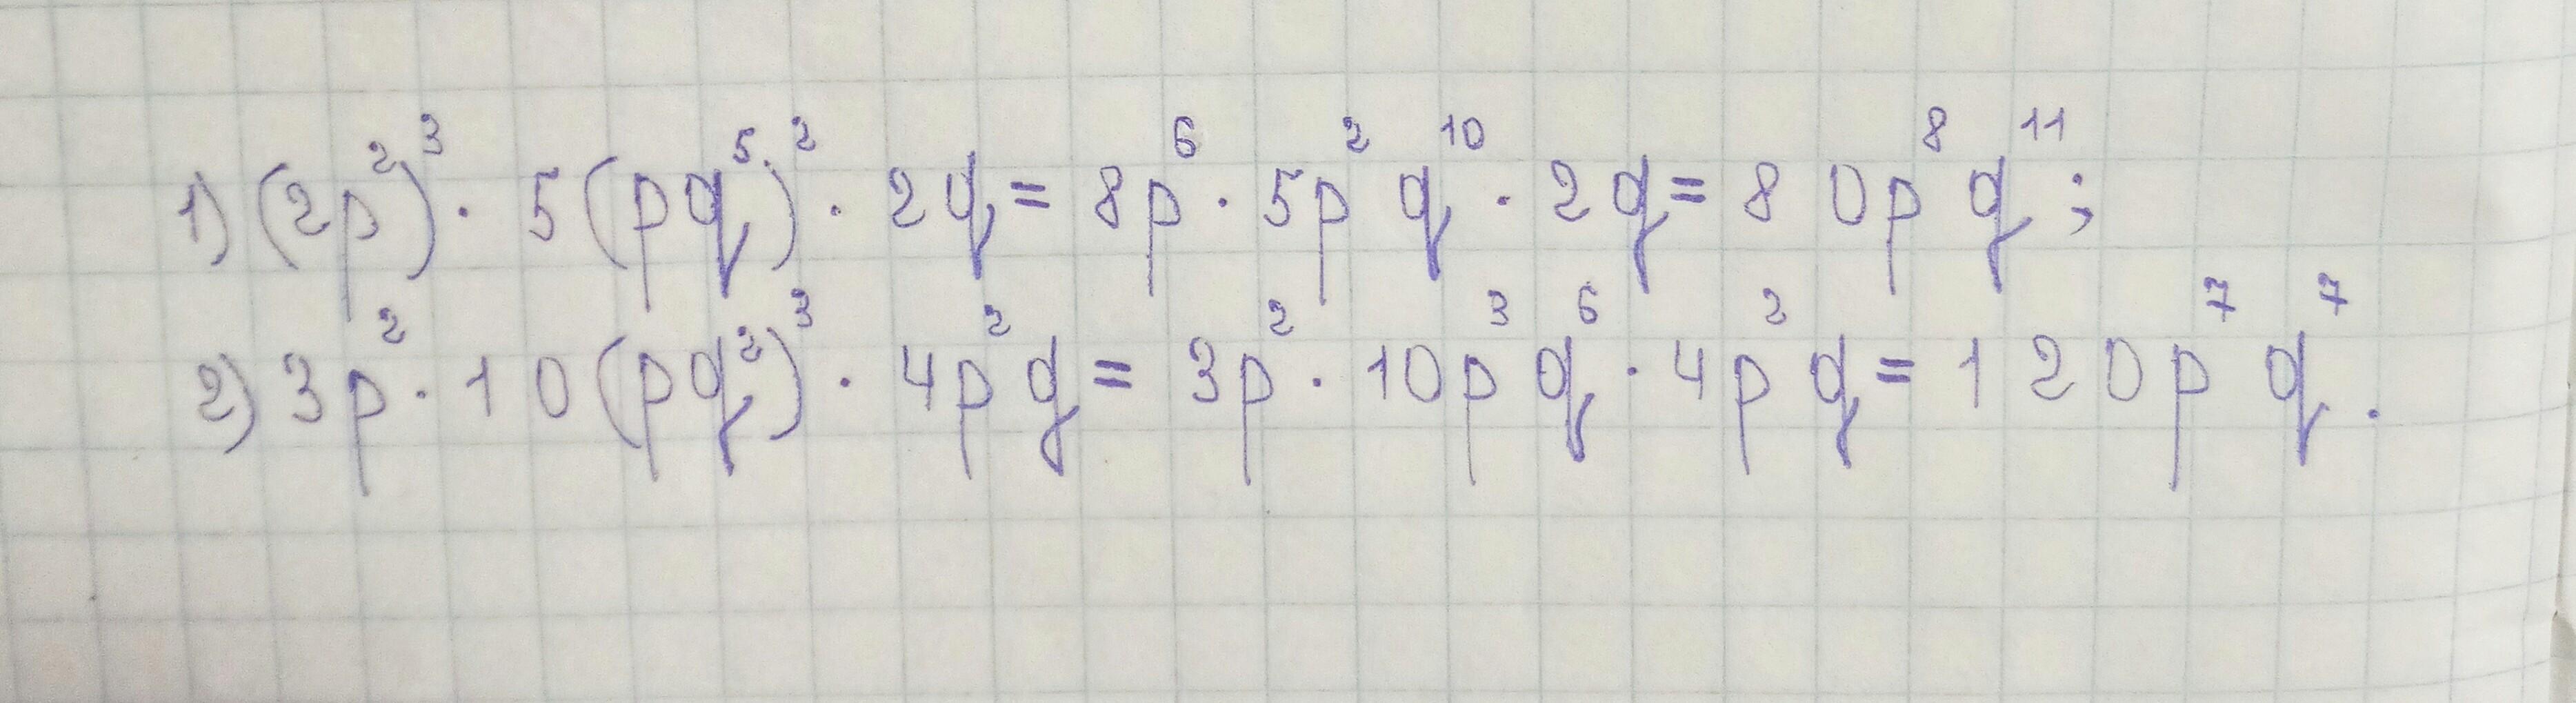 1) (2p²)³ · 5(pq⁵)² · 2q = 8p⁶ · 5p²q¹⁰ · 2q = 80p⁸q¹¹;
2) 3p² · 10(pq²)³ · 4p²q = 3p² · 10p³q⁶ · 4p²q = 120p⁷q⁷.